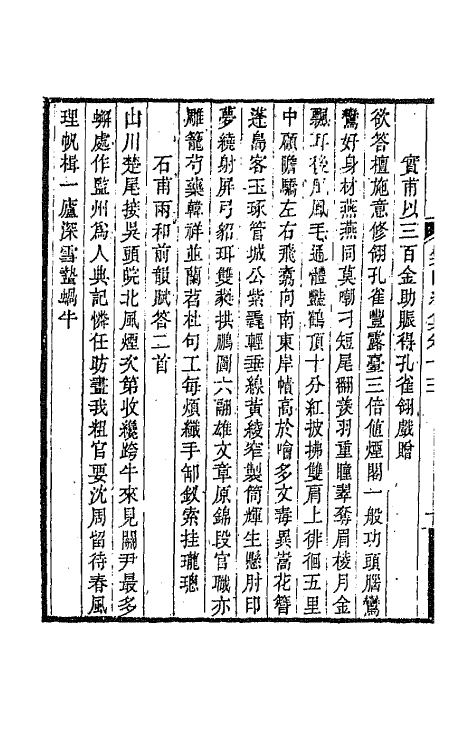 實甫以三百金助賑得孔雀翎戲贈
欲答檀施意修翎孔雀豐露臺三倍値煙閣一般功頭腦鶯
鶯好身材燕燕同莫嘲刁短尾翻羨羽重瞳翠奪眉棱月金
飄耳後風毛通體豔鶴頂十分紅披拂雙肩上徘徊五里
中願瞻驕左右飛翥向南東岸幘高於噲多文毒異蒿花簪
蓬島客玉琢管城公紫毳輕垂線黃綾窄製筒輝生懸肘印
夢繞射屏弓貂珥雙蕤拱鵬圖六翮雄文章原錦段官職亦
雕籠芍藥韓祥並蘭苕杜句工每煩纖手卸釵索挂瓏璁
石甫兩和前韻賦答二首
山川楚尾接吳頭皖北風煙次第收纔跨牛來見關尹最多
蟹處作監州爲人典記憐任昉畫我粗官要沈周留待春風
理帆楫一廬深雪蟄蝸牛